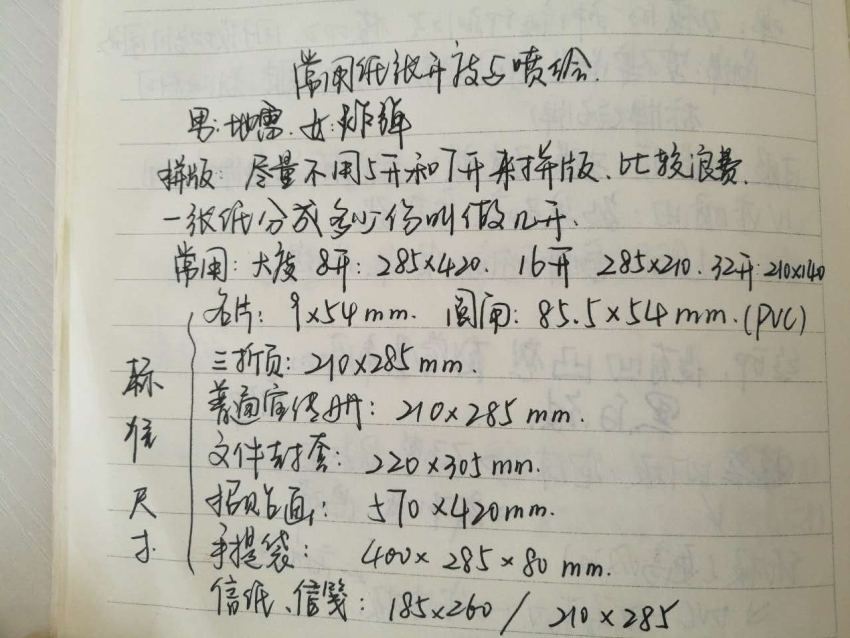 常用纸张开度与喷绘.
男:地雷.女:炸弹
拼版:尽量不用5开和7开来拼版.比较浪费.
一张纸分成多少份叫做几开.
常用:大度 8开:285×420. 16开 285×210. 32开:210×140
名片: 9×54mm. 圆角:85.5×54mm.(PVC)
三折页:210×285mm.
普通宣传册:210×285mm.
文件封套:220×305mm.
招贴画:570×420mm.
手提袋: 400×285×80mm.
信纸、信笺:185×260/210×285
标准尺寸